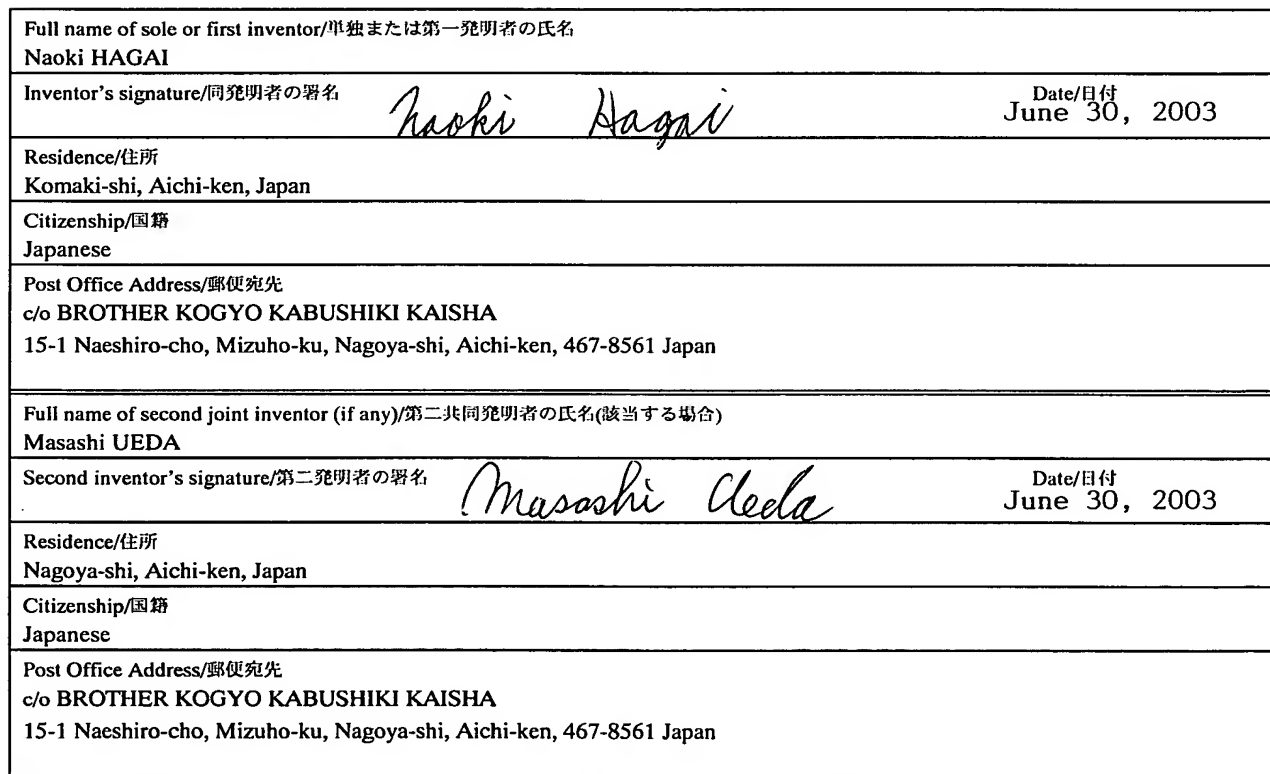 Full name of sole or first inventor/単独または第一発明者の氏名
Naoki HAGAI
Inventor's signature/同発明者の署名 Naoki Hagai Date/日付
June 30, 2003
Residence/住所
Komaki-shi, Aichi-ken, Japan
Citizenship/国籍
Japanese
Post Office Address/郵便宛先
c/o BROTHER KOGYO KABUSHIKI KAISHA
15-1 Naeshiro-cho, Mizuho-ku, Nagoya-shi, Aichi-ken, 467-8561 Japan
Full name of second joint inventor (if any)/第二共同発明者の氏名(該当する場合)
Masashi UEDA
Second inventor's signature/第二発明者の署名 Masashi Ueda Date/日付
June 30, 2003
Residence/住所
Nagoya-shi, Aichi-ken, Japan
Citizenship/国籍
Japanese
Post Office Address/郵便宛先
c/o BROTHER KOGYO KABUSHIKI KAISHA
15-1 Naeshiro-cho, Mizuho-ku, Nagoya-shi, Aichi-ken, 467-8561 Japan